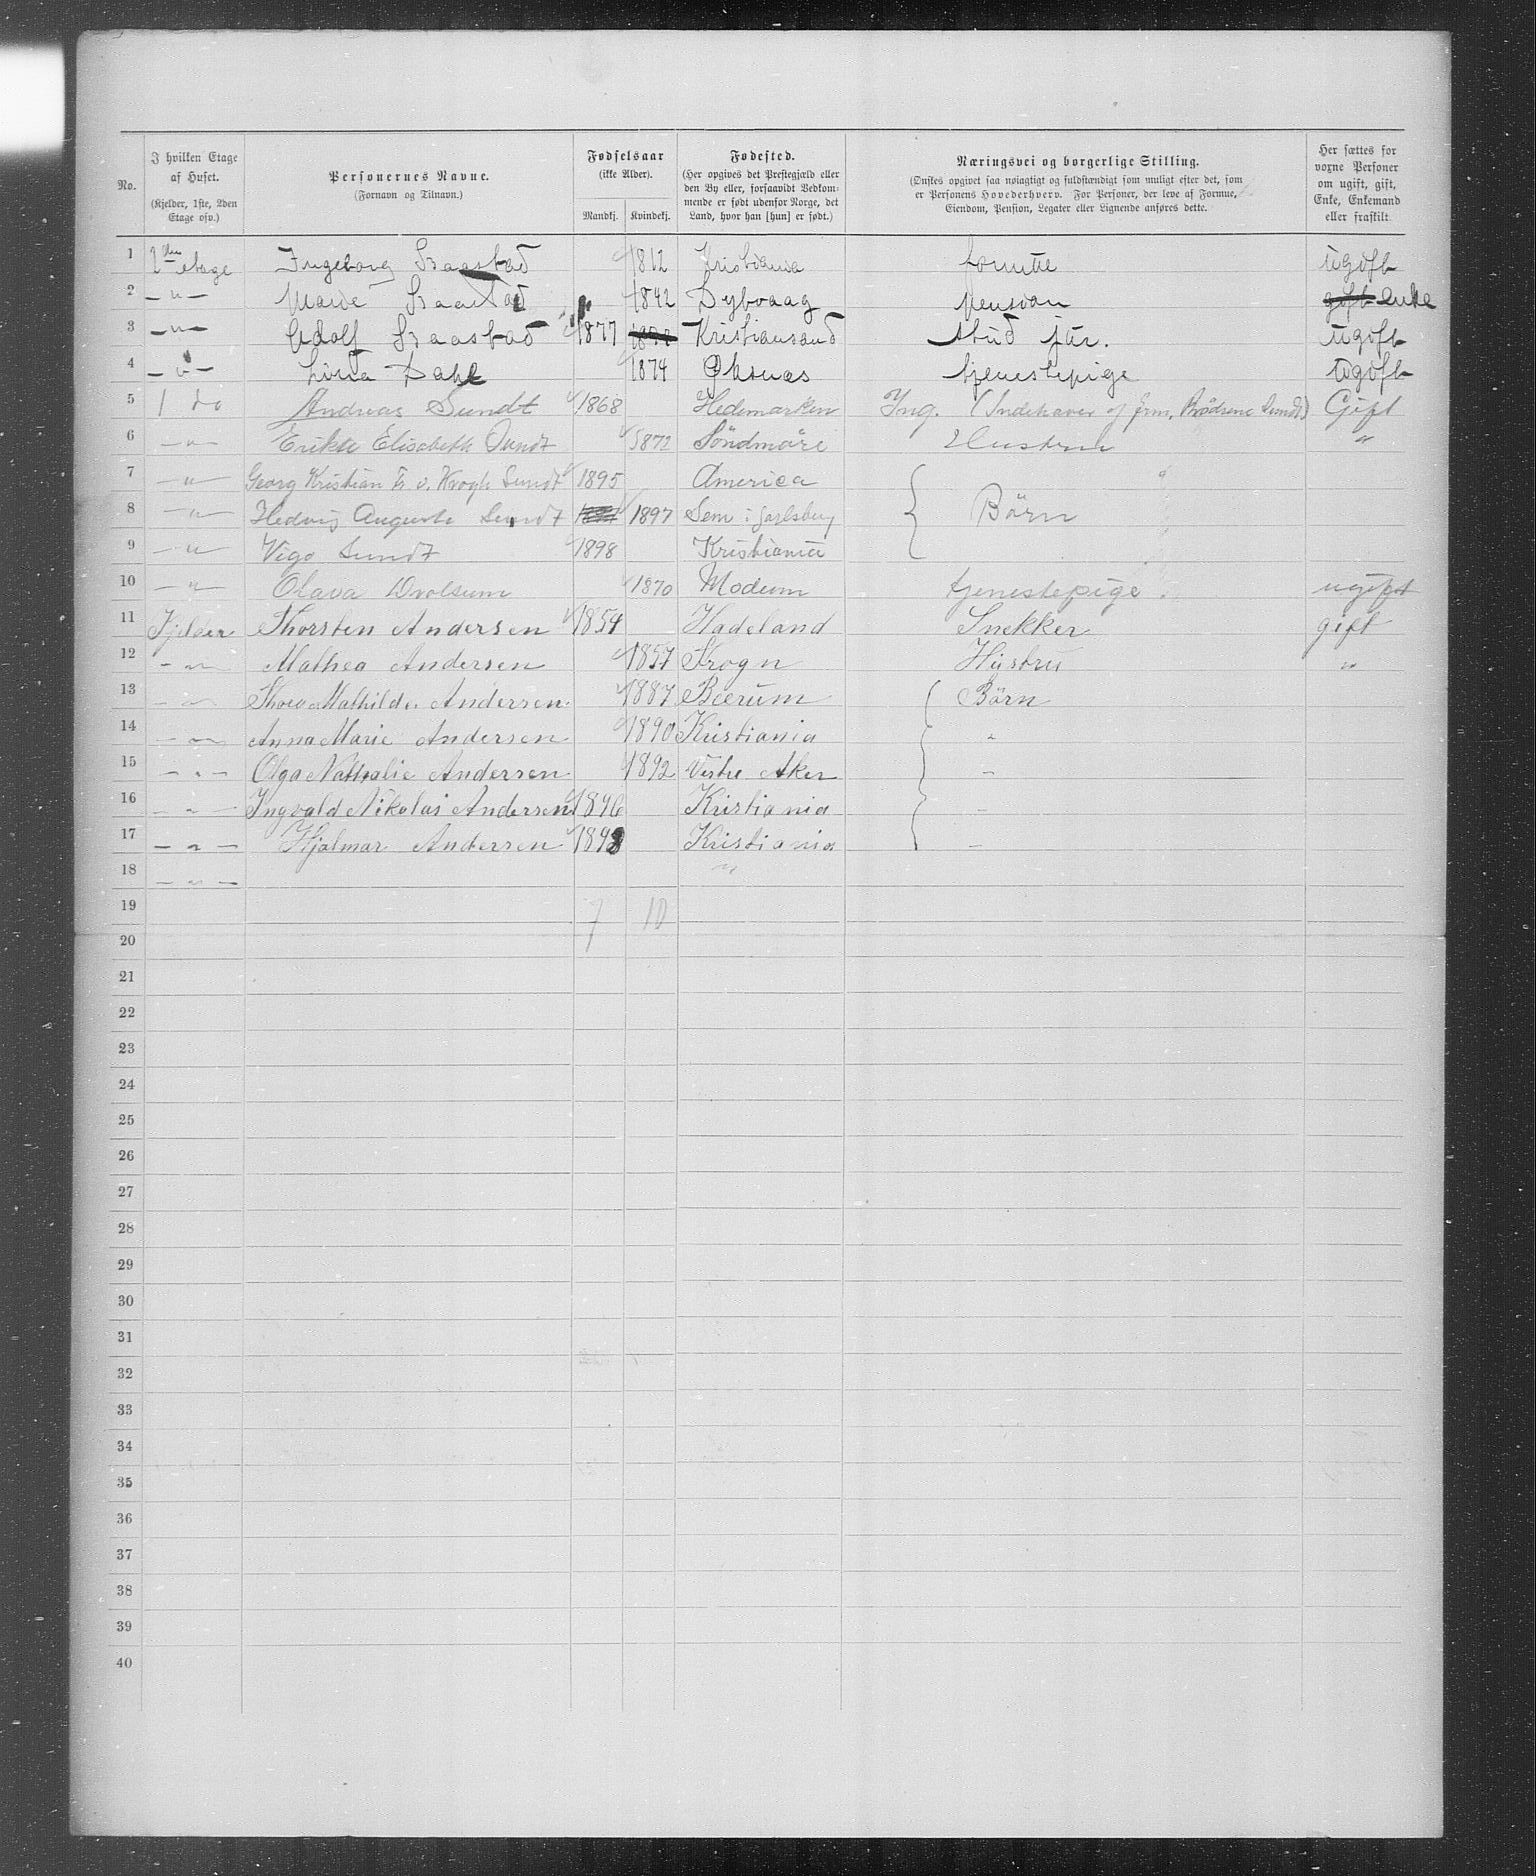 No.
I hvilken Etage af Huset.
(Kjelder, 1ste, 2den Etage osv.)
Personernes Navne.
(Fornavn og Tilnavn.)
Fødselsaar
(ikke Alder).
Mandkj. Kvindekj.
Fødested.
(Her opgives det Prestegjæld eller den By eller, forsaavidt Vedkommende er født udenfor Norge, det Land, hvor han [hun] er født.)
Næringsvei og borgerlige Stilling.
(Ønskes opgivet saa nøiagtigt og fuldstændigt som muligt efter det, som er Personens Hovederhverv. For Personer, der leve af Formue, Eiendom, Pension, Legater eller Lignende anføres dette.
Her sættes for voxne Personer om ugift, gift, Enke, Enkemand eller fraskilt.
1 2den etage Ingeborg Baastad 1812 Kristiania formue ugift
2 - " - Marie Baastad 1842 Dybvaag Pension gift enke
3 - " - Adolf Baastad 1877 Kristiansand stud jur. ugift
4 - " - Lina Dahl 1874 Øksnæs tjenestepige ugift
5 1 do Andreas Sundt 1868 Hedemarken Ing. (Indehaver af firm. Brödrene Sundt) Gift
6 - " - Erikke Elisabeth Sundt 1872 Söndmöre Hustru "
7 - " - Georg Kristian Fr. v. Krogh Sundt 1895 America
8 - " - Hedvig Auguste Sundt 1897 Sem i Jarlsberg Börn
9 - " - Vigo Sundt 1898 Kristiania
10 - " - Olava Dvolsum 1870 Modum tjenestepige ugift
11 Kjelder Thorsten Andersen 1854 Hadeland Snekker gift
12 - " - Mathea Andersen 1857 Krogn Hustru "
13 - " - Thora Mathilde Andersen 1887 Bærum Börn
14 - " - Anna Marie Andersen 1890 Kristiania "
15 - " - Olga Nathalie Andersen 1892 Vestre Aker -
16 - " - Ingvald Nikolai Andersen 1896 Kristiania -
17 - " - Hjalmar Andersen 1898 Kristiania -
18 - " - "
19 7 10
20
21
22
23
24
25
26
27
28
29
30
31
32
33
34
35
36
37
38
39
40